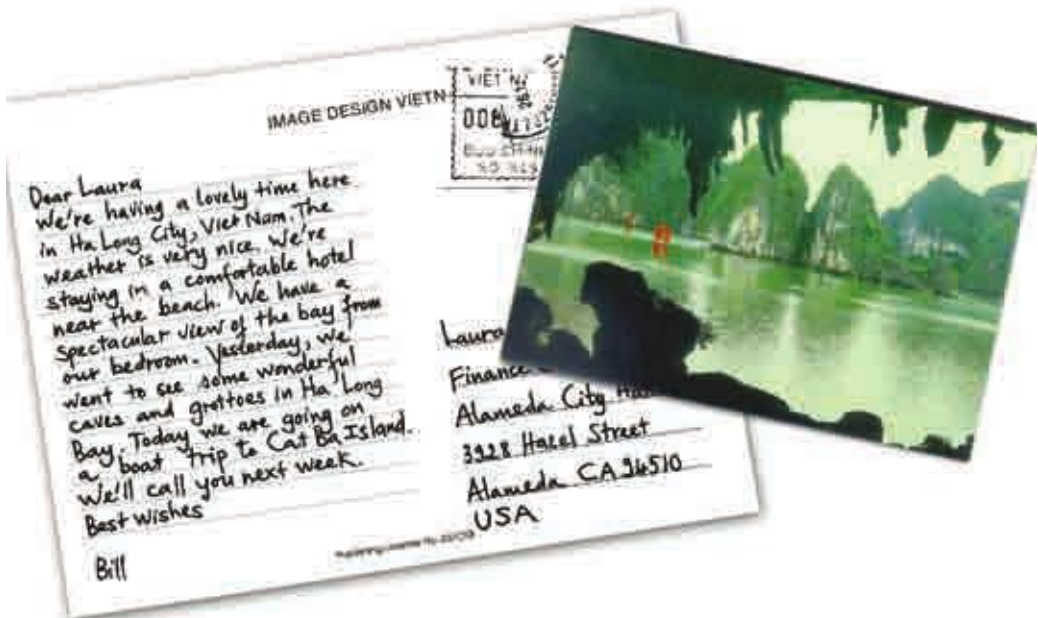 IMAGE DESIGN VIETN
VIET N
008
Dear Laura
We're having a lovely time here
in Ha Long City, Viet Nam. The
weather is very nice. We're
staying in a comfortable hotel
near the beach. We have a
spectacular view of the bay from
our bedroom. Yesterday, we
went to see some wonderful
caves and grottoes in Ha Long
Bay. Today we are going on
a boat trip to Cat Ba Island.
We'll call you next week.
Best Wishes
Bill
Laura
Finance
Alameda City
3928 Hazel Street
Alameda CA 94510
USA